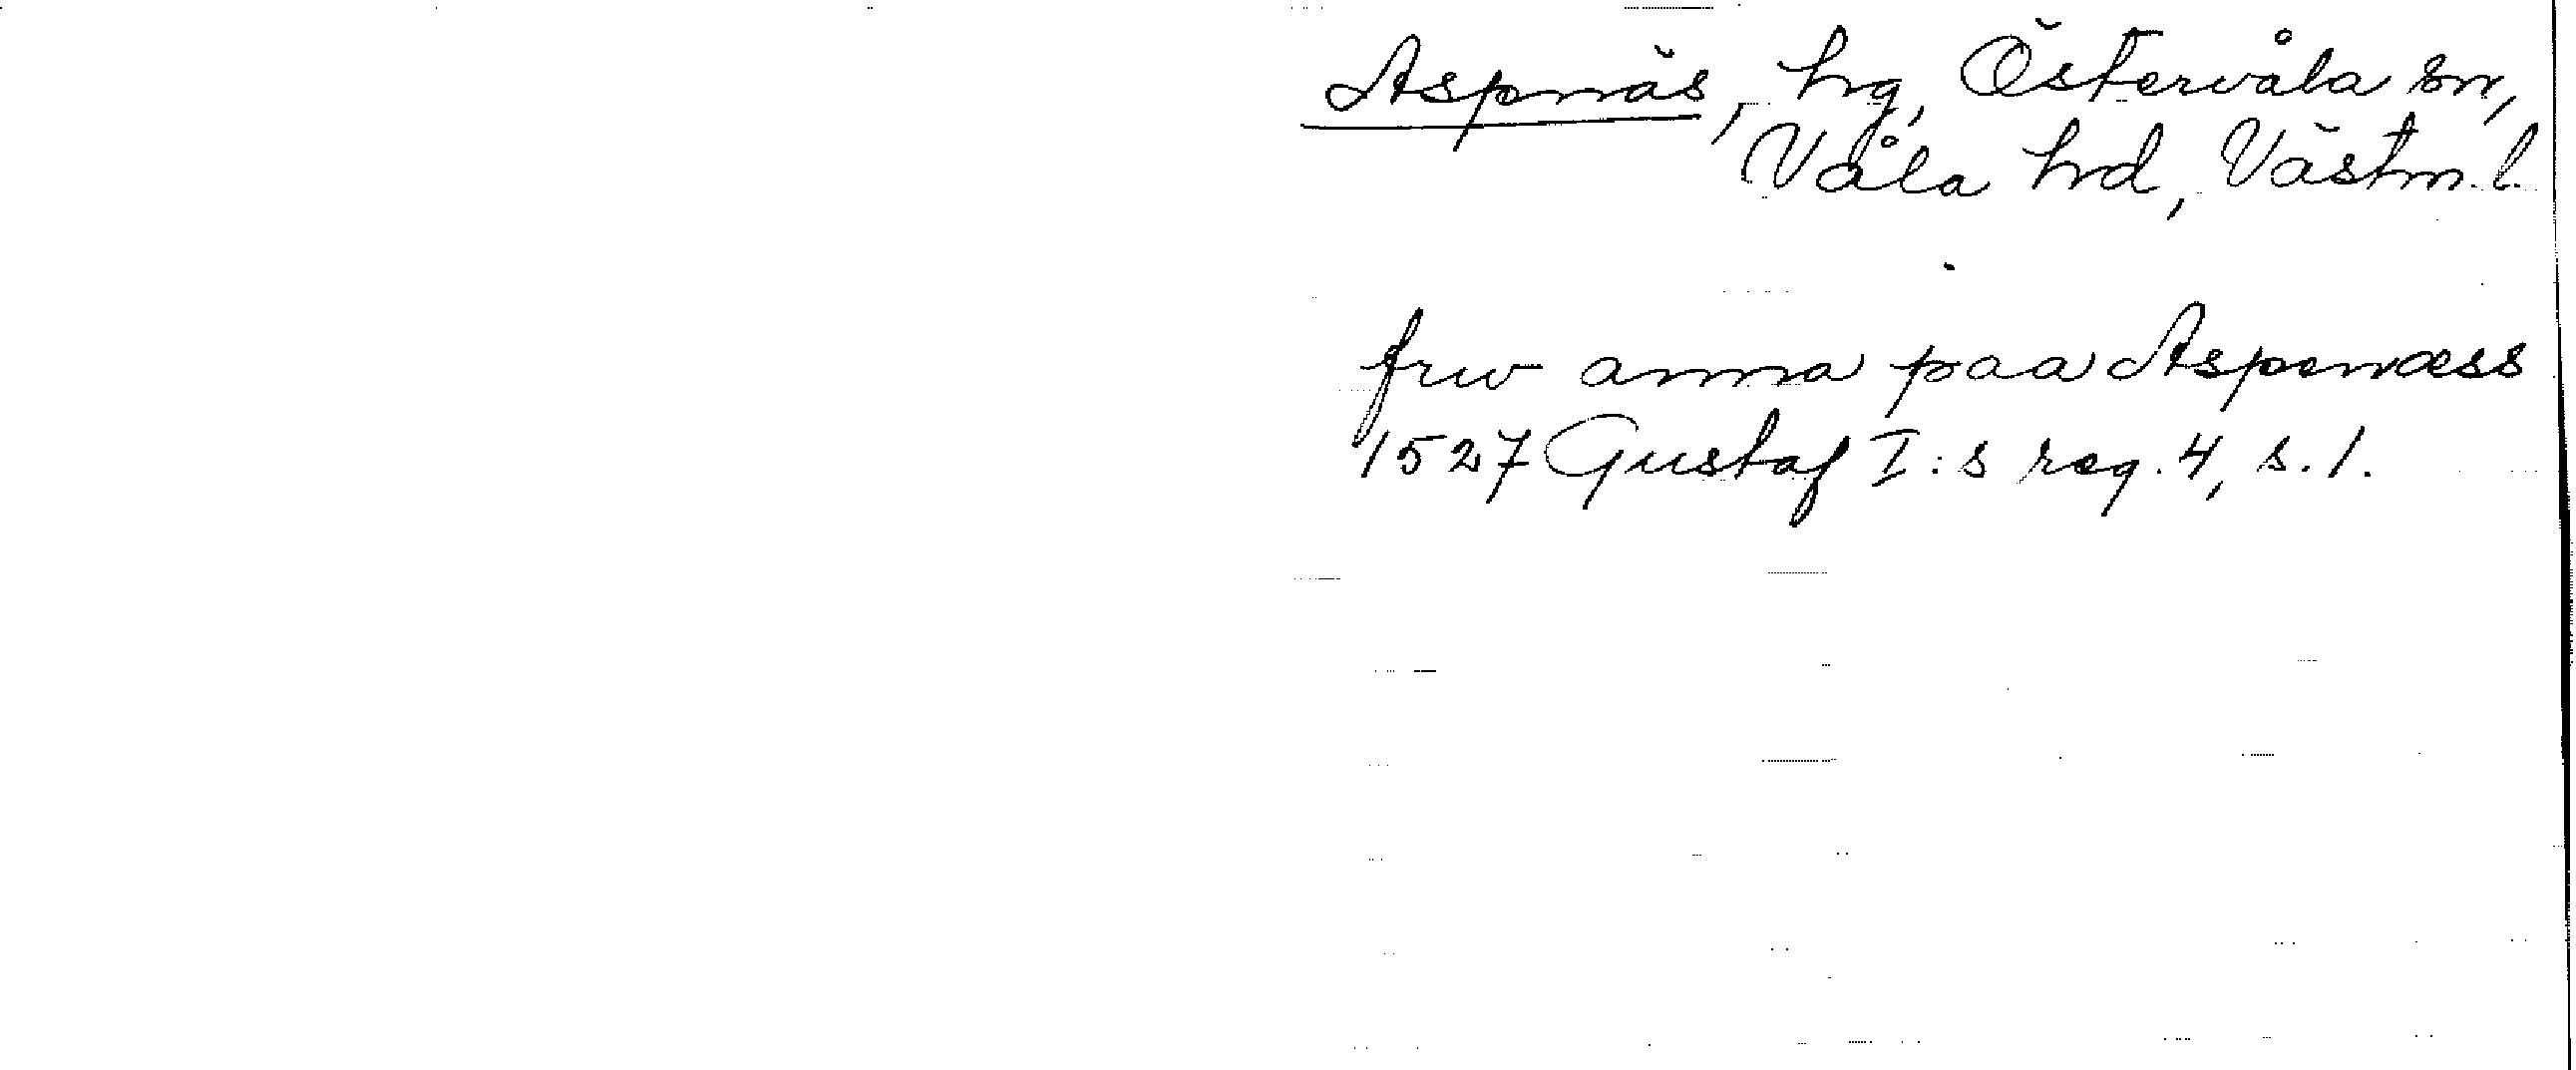 Aspnäs, hg, Östervåla sn,
Våla hd, Västm. l.
frw anna paa Aspenæss
1527 Gustaf I:s reg. 4, s. 1.